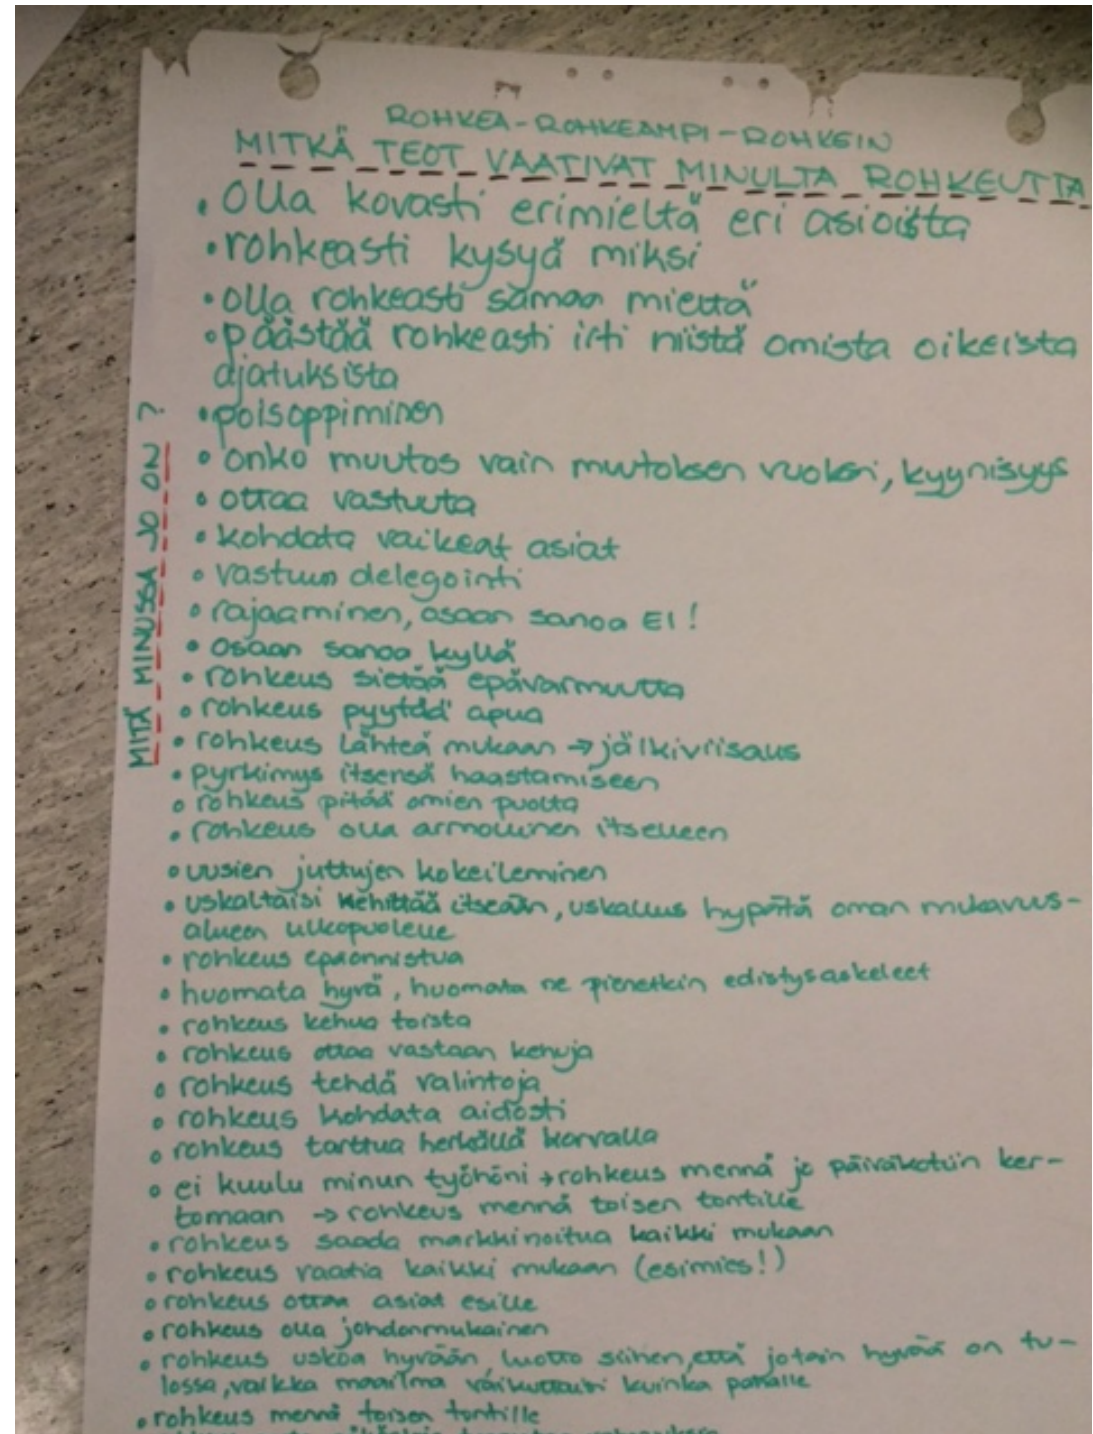 ROHKEA - ROHKEAMPI - ROHKEIN
MITKÄ TEOT VAATIVAT MINULTA ROHKEUTTA
• Olla kovasti erimieltä eri asioista
• rohkeasti kysyä miksi
• olla rohkeasti samaa mieltä
• päästää rohkeasti irti niistä omista oikeista
ajatuksista
• poisoppiminen
• onko muutos vain muutoksen vuoksi, kyynisyys
• ottaa vastuuta
• kohdata vaikeat asiat
• vastuun delegointi
• rajaaminen, osaan sanoa EI!
• osaan sanoa kyllä
• rohkeus sietää epävarmuutta
• rohkeus pyytää apua
• rohkeus lähteä mukaan → jälkiviisaus
• pyrkimys itsensä haastamiseen
• rohkeus pitää omien puolta
• rohkeus olla armollinen itselleen
• uusien juttujen kokeileminen
• uskaltaisi kehittää itseään, uskallus hypätä oman mukavuus-
alueen ulkopuolelle
• rohkeus epäonnistua
• huomata hyvä, huomata ne pienetkin edistysaskeleet
• rohkeus kehua toista
• rohkeus ottaa vastaan kehuja
• rohkeus tehdä valintoja
• rohkeus kohdata aidosti
• rohkeus tarttua herkällä korvalla
• ei kuulu minun työhöni → rohkeus mennä jo päiväkotiin ker-
tomaan → rohkeus mennä toisen tontille
• rohkeus saada markkinoitua kaikki mukaan
• rohkeus vaatia kaikki mukaan (esimies!)
• rohkeus ottaa asiat esille
• rohkeus olla johdonmukainen
• rohkeus uskoa hyvään, luotto siihen, että jotain hyvää on tu-
lossa, vaikka maailma vaikuttaisi kuinka pahalle
• rohkeus mennä toisen tontille
MITÄ MINUSSA JO ON?